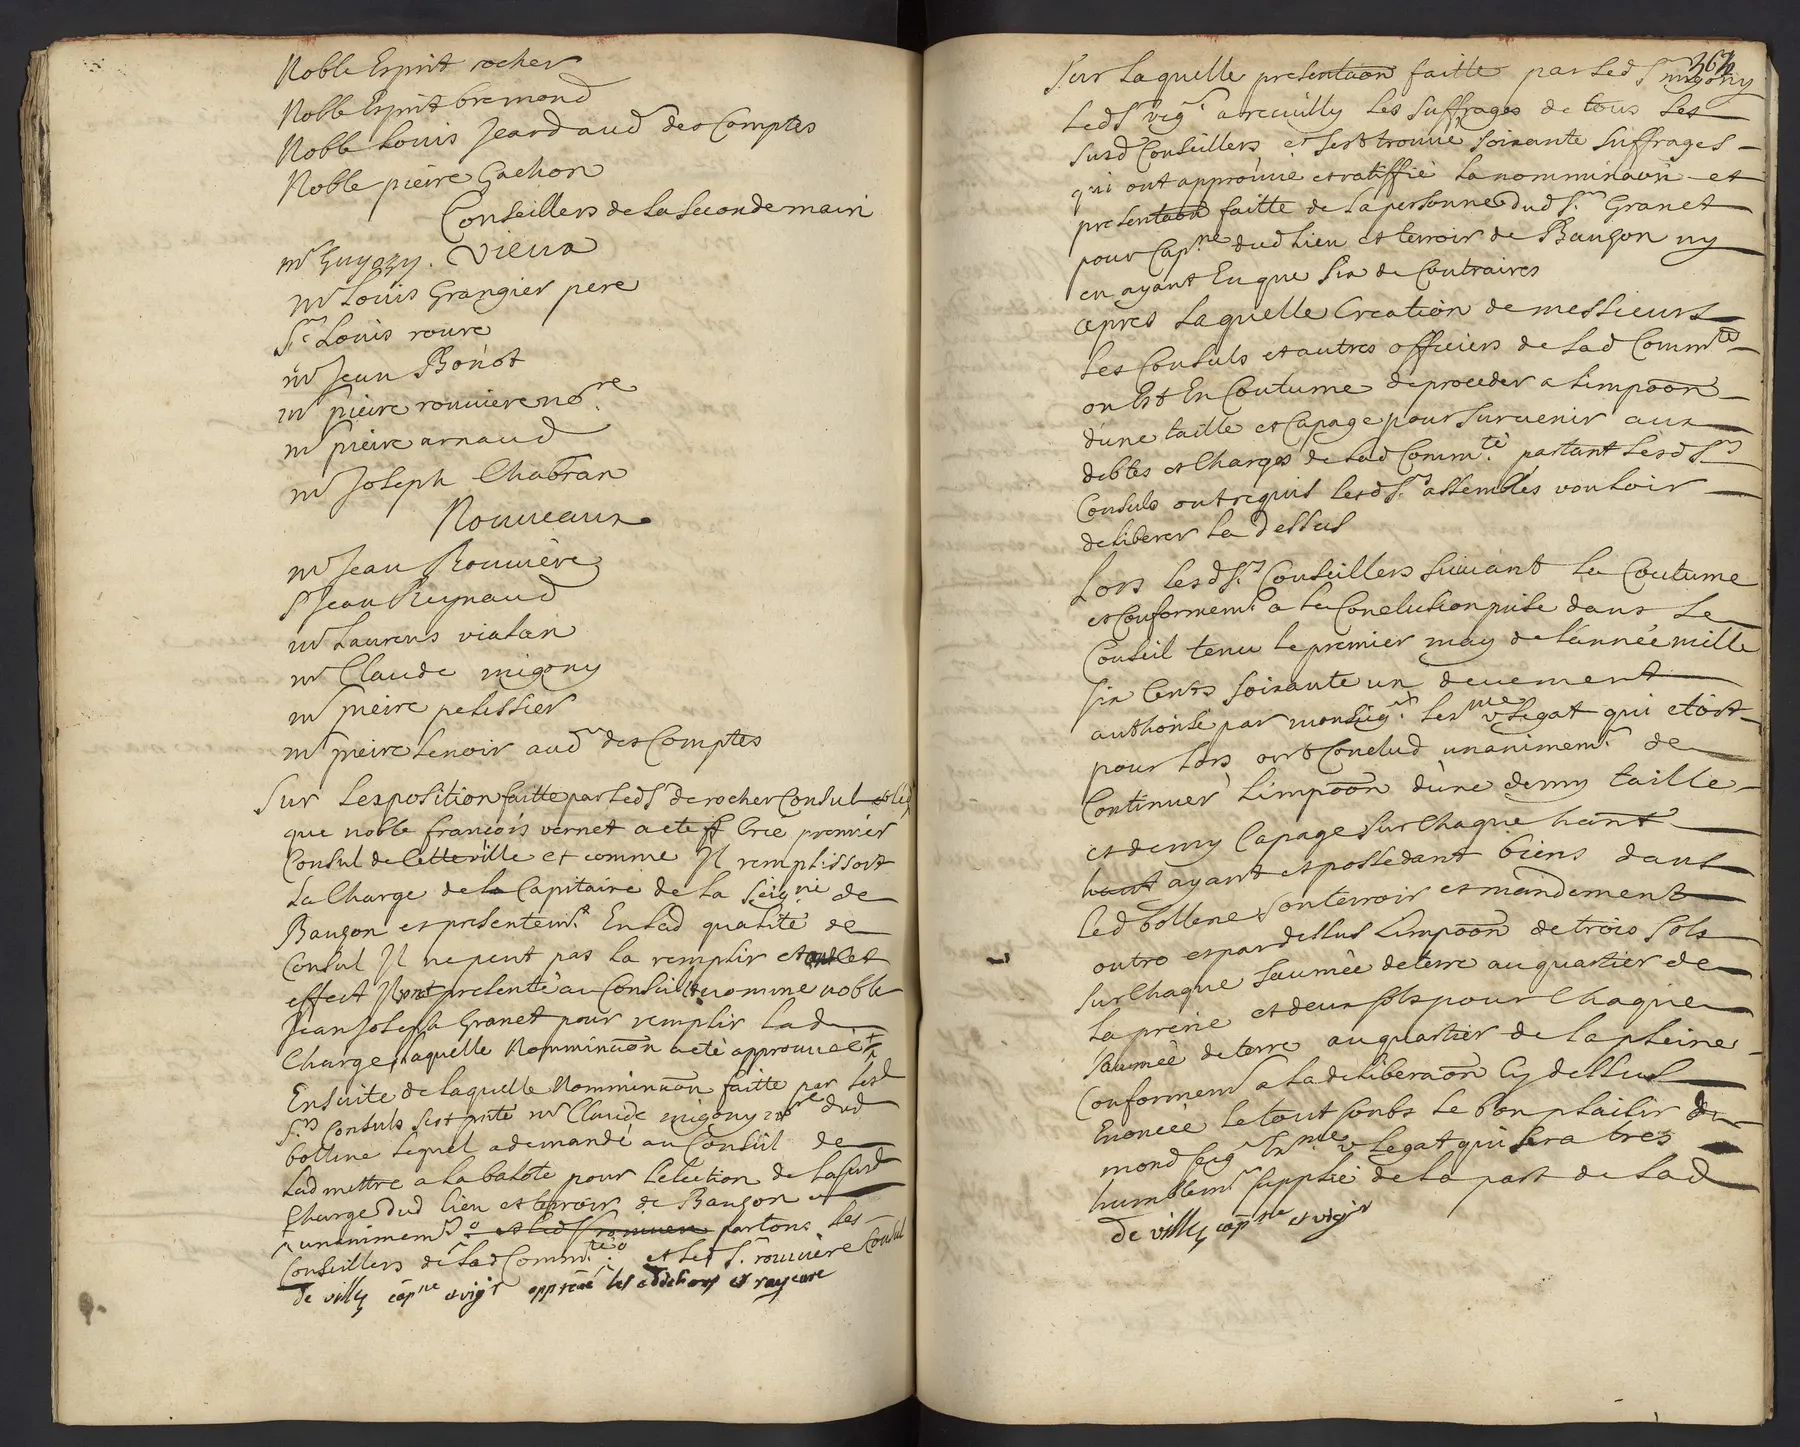 Noble Esprit rocher
Noble Esprit bremond
Noble Louis Jeard audr des Comptes
Noble pieire Gachon
Conseillers de la seconde main
Vieux
mr Guyozy.
mr Louis Grangier pere
Sr Louis roure
mr Jean Bonot
mr pieire rouviere nore
mr pieire arnaud
mr Joseph Chabran
Nouueaux
mr Jean Rouuiere
Sr Jean Reynaud
mr Laurens vialan
mr Claude migony
mr pieire pelissier
mr pieire Lenoir audr des Comptes
Sur Lexposition faitte par Led Sr de rocher Consul
que noble françois vernet a eté Crée premier
Consul de Cette ville et comme Il remplissoit
La Charge de Capitaine de la Seigrie de
Bauzon et presentemt En Lad qualité de
Consul Il ne peut pas la remplir et a cet
effect Il ont presenté au Conseil et nomme noble
Jean Joseph Granet pour remplir Lad
Charge, Laquelle Nomminaon a eté approuvée
Ensuite de Laquelle Nomminaon faitte par Lesd
Srs Consuls sest pnté mr Claude migony nore dud
bollene Lequel a demandé au Conseil de
Lad mettre a la balote pour Lelection de La susd
Charge dud lieu et terroir de Bauzon et
unanimemt et Led Sr rouuiere par tous Les
Conseillers de Lad Commté et Led Sr rouuiere Consul
De villy capne et vigr appreuue les additions et rayeure
364
Sur Laquelle presentaon faitte par Led Sr migony
Led Sr vigr a recuilly Les suffrages de tous Les
susd Conseillers et sest trouué soixante suffrages
qui ont approuué et ratiffié La nomminaon et
presentaon faitte de La personne dud Sr Granet
pour Capne dud Lieu et terroir de Bauzon ny
en ayant Eu que six de Contraires
apres Laquelle Creation de messieurs
Les Consuls et autres officiers de Lad Commté
on Est En Coutume de proceder a Limpoon
d'une taille et Capage pour suruenir aux
debtes et Charges de Lad Commté partant Lesd Srs
Consuls ont requis Lesd Srs assemblés vouloir
deliberer La Dessus
Lors Lesd Srs Conseillers suiuant La Coutume
et Conformemt a La Conclusion prise dans Le
Conseil tenu Le premier may de L'année mille
six Cents soixante un deuement
authorisé par monseigr Lesme vLegat qui etoit
pour Lors ont Conclud unanimemt de
Continuer Limpoon d'une demy taille
et demy Capage sur Chaque hant
hant ayant et possedant biens dans
Led bollene son terroir et mandement
outre et par dessus Limpoon de trois sols
sur Chaque saumée de terre au quartier de
La prerie et deux sols pour Chaque
saumée de terre au quartier de La pleine
Conformemt a La deliberaon Cy dessus
Enoncée Le tout soubs Le bon plaisir de
mond seigr Emme v Legat qui sera tres
humblemt supplié de La part de Lad
De villy capne et vigr